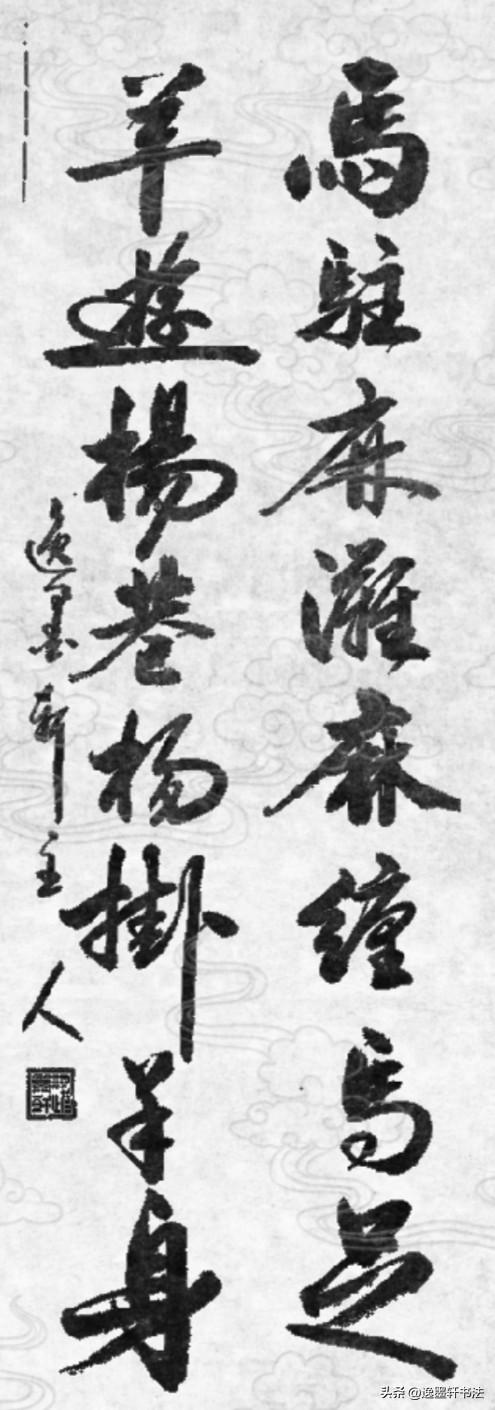 馬駐麻灘麻纏馬足
羊遊楊巷杨掛羊身
逸墨軒主人
头条 @逸墨轩书法